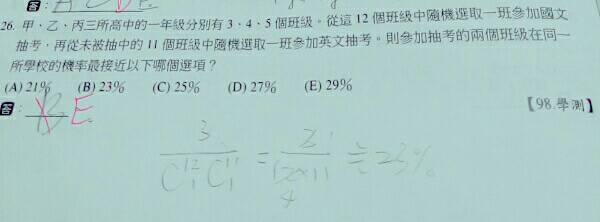 答：
26. 甲、乙、丙三所高中的一年級分別有 3、4、5 個班級。從這 12 個班級中隨機選取一班參加國文
抽考，再從未被抽中的 11 個班級中隨機選取一班參加英文抽考。則參加抽考的兩個班級在同一
所學校的機率最接近以下哪個選項？
(A) 21% (B) 23% (C) 25% (D) 27% (E) 29%
答： B E. 【98.學測】
3 / C₁¹² C₁¹¹ = 3 / 12×11 ≒ 23%
4